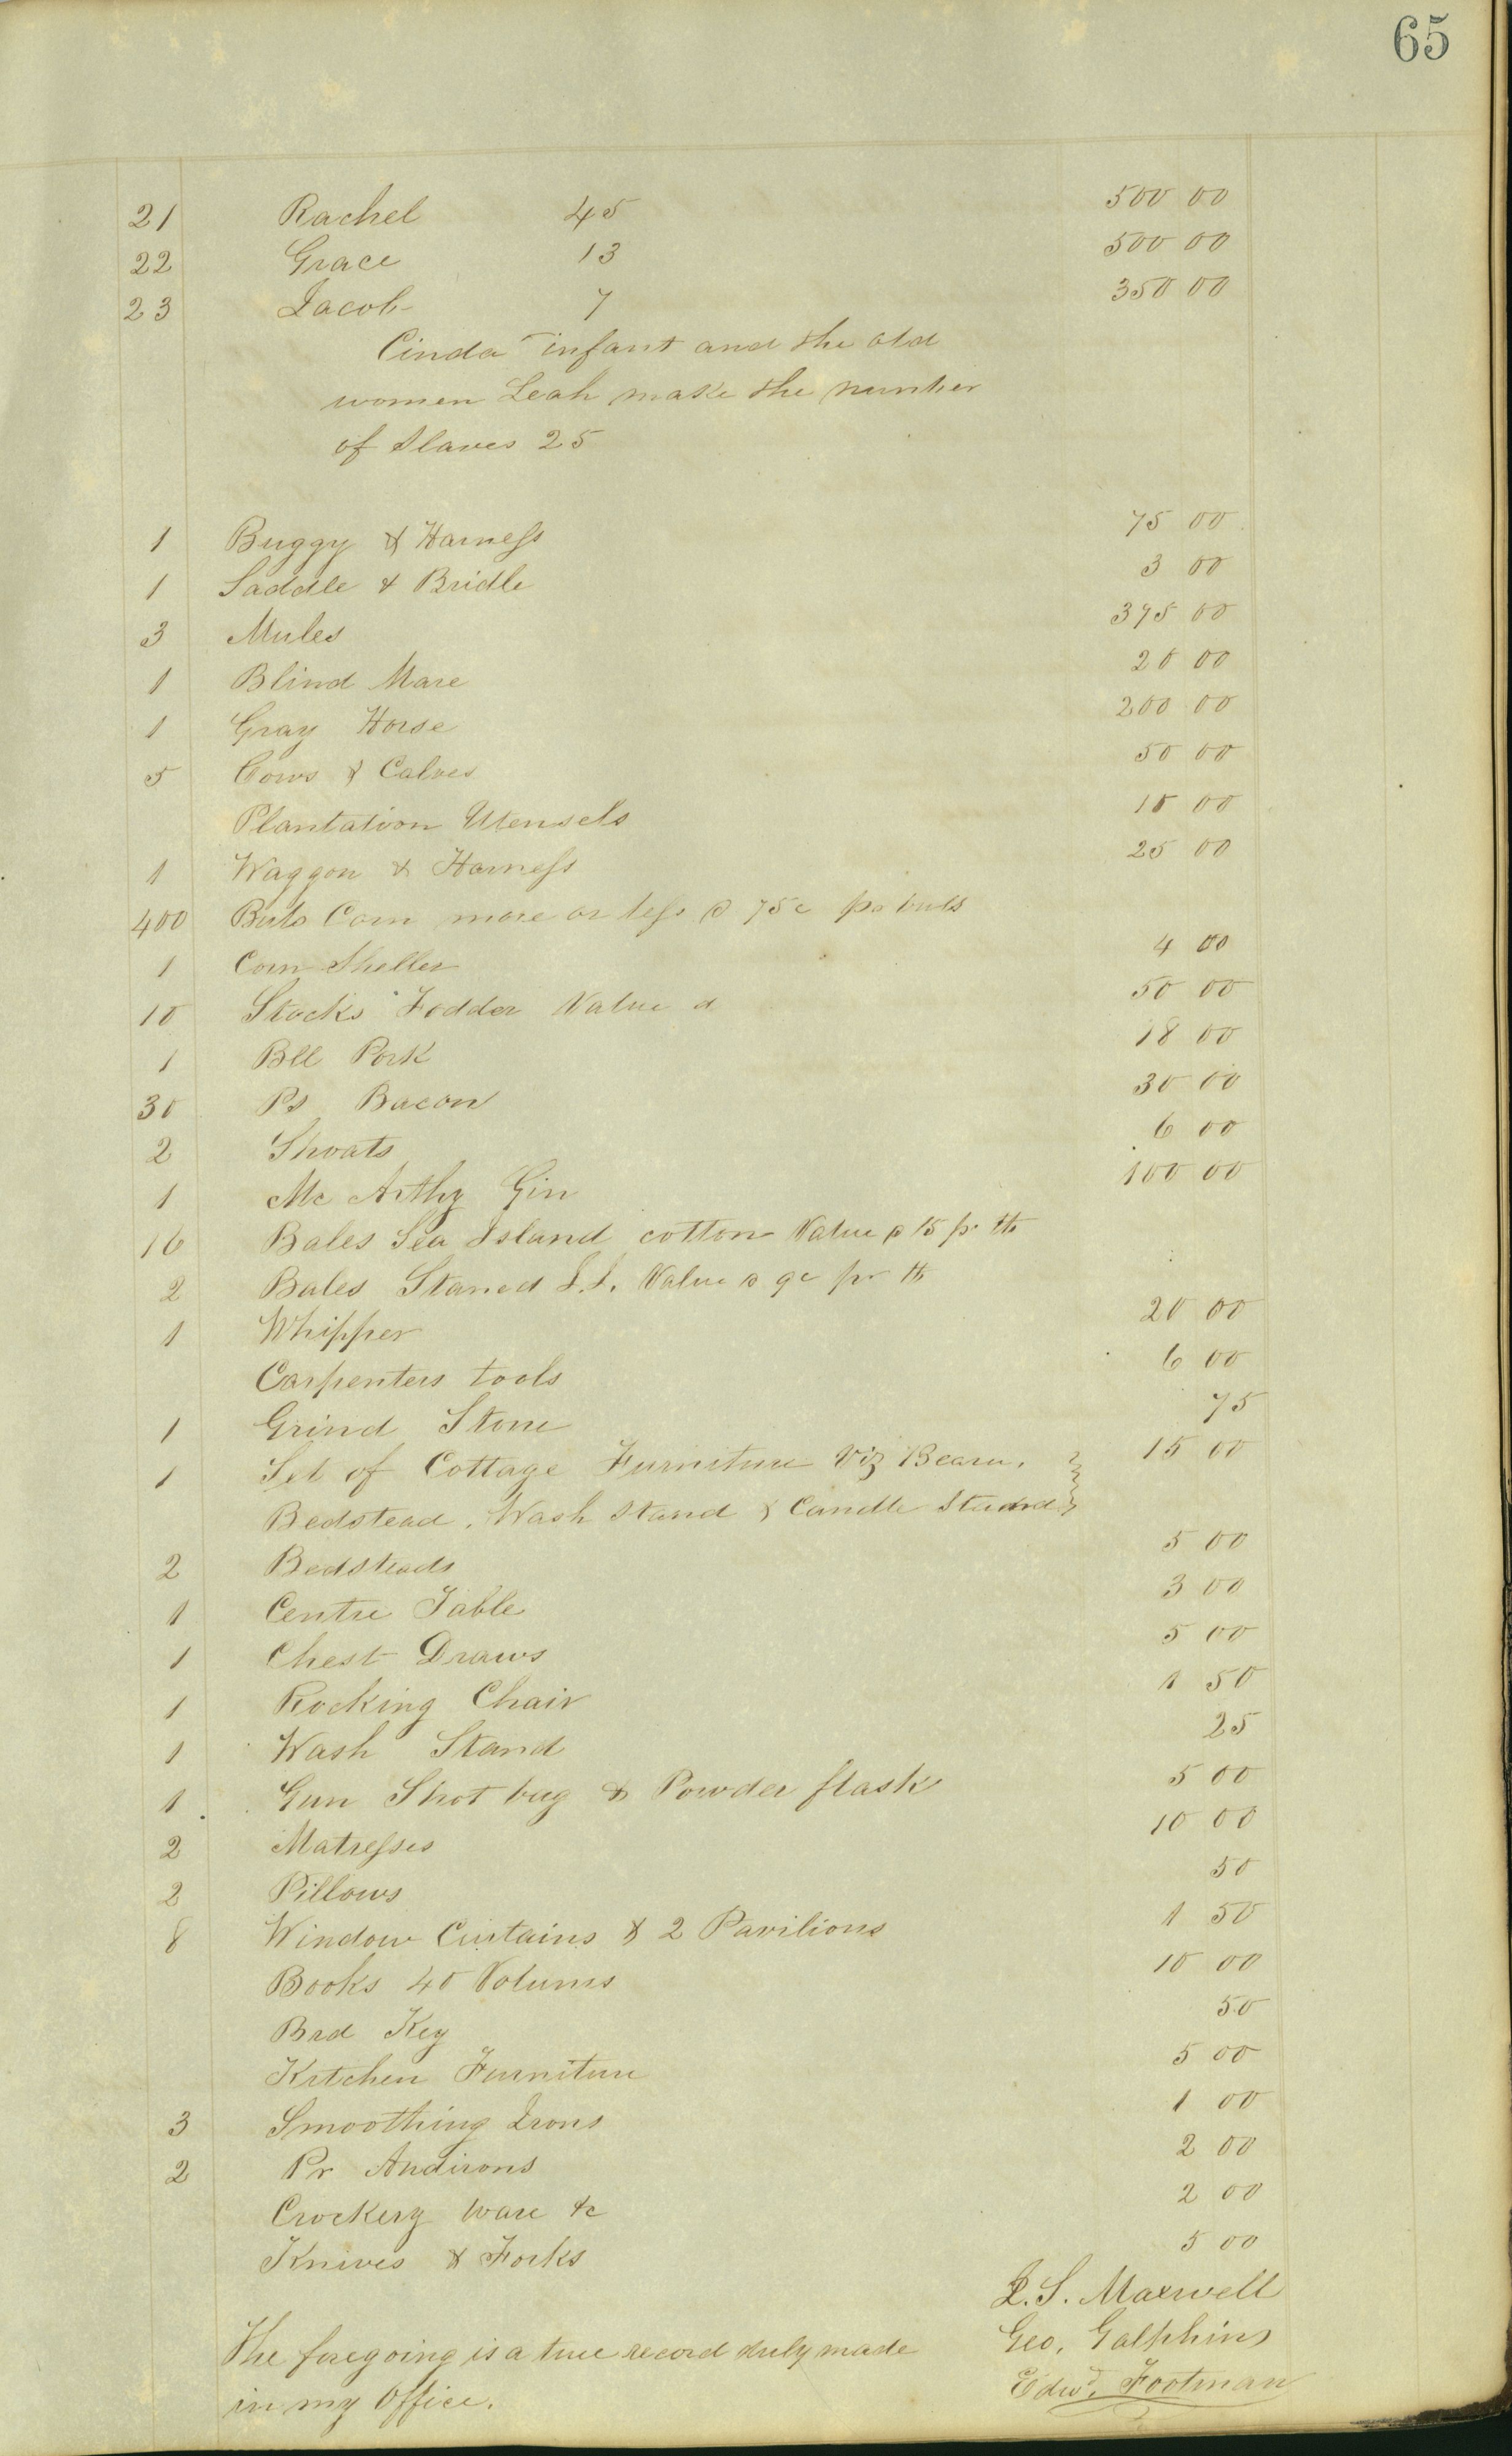 65
21 Rachel 45 500 00
22 Grace 13 500 00
23 Jacob 7 350 00
Cinda infant and the old
women Leah make the number
of Slaves 25
1 Buggy & Harness 75 00
1 Saddle & Bridle 3 00
3 Mules 375 00
1 Blind Mare 20 00
1 Gray Horse 200 00
5 Cows & Calves 50 00
Plantation Utensels 10 00
1 Waggon & Harness 25 00
400 Buls Corn more or less @ 75c pr buls
1 Corn Sheller 4 00
10 Stacks Fodder Value @ 50 00
1 Bll Pork 18 00
30 Ps Bacon 30 00
2 Shoats 6 00
1 Mc Arthy Gin 100 00
16 Bales Sea Island cotton Value @ 15 pr lb
2 Bales Staned S.I. Value @ 9c pr lb
1 Whipper 20 00
Carpenters tools 6 00
1 Grind Stone 75
1 Set of Cottage Furniture Viz Bearu. 15 00
Bedstead. Wash Stand & Candle Stand
2 Bedsteads 5 00
1 Centre Table 3 00
1 Chest Draws 5 00
1 Rocking Chair 1 50
1 Wash Stand 25
1 Gun Shot bag & Powder flask 5 00
2 Matresses 10 00
2 Pillows 50
8 Window Curtains & 2 Pavilions 1 50
Books 40 Volums 10 00
Brd Key 50
Kitchen Furniture 5 00
3 Smoothing Irons 1 00
2 Pr Andirons 2 00
Crockery ware &c 2 00
Knives & Forks 5 00
J. S. Maxwell
The foregoing is a true record duly made Geo. Galphin
in my Office. Edwd. Footman